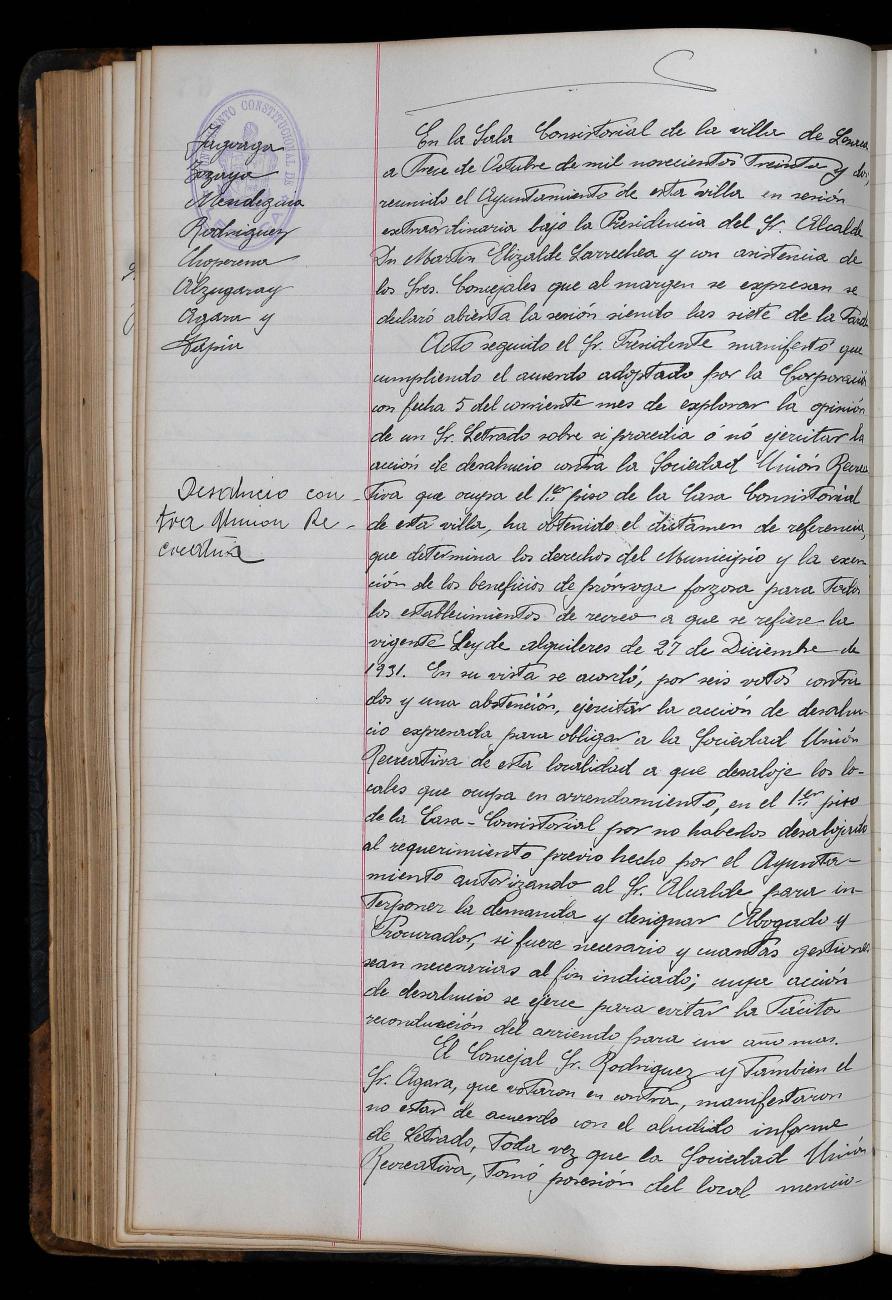 AYUNTAMIENTO CONSTITUCIONAL DE
Zozaya
Mendeguia
Rodriguez
Choperena
Alzugaray
Agara y
Tapia
Desahucio con-
tra Union Re-
creativa
En la Sala Consistorial de la villa de Lesaca
a trece de Octubre de mil novecientos treinta y dos,
reunido el Ayuntamiento de esta villa en sesión
extraordinaria bajo la Presidencia del Sr. Alcalde
Dn Martín Elizalde Larrechea y con asistencia de
los Sres. Concejales que al margen se expresan se
declaró abierta la sesión siendo las siete de la tarde
Acto seguido el Sr. Presidente manifestó que
cumpliendo el acuerdo adoptado por la Corporación
con fecha 5 del corriente mes de explorar la opinión
de un Sr. Letrado sobre si procedia ó nó ejercitar la
acción de desahucio contra la Sociedad Unión Recrea
tiva que ocupa el 1er piso de la Casa Consistorial
de esta villa, ha obtenido el dictamen de referencia,
que determina los derechos del Municipio y la exen
ción de los beneficios de prórroga forzosa para todos
los establecimientos de recreo a que se refiere la
vigente Ley de alquileres de 27 de Diciembre de
1931. En su vista se acordó, por seis votos contra
dos y una abstención, ejercitar la acción de desahu-
cio expresada para obligar a la Sociedad Unión
Recreativa de esta localidad a que desaloje los lo-
cales que ocupa en arrendamiento, en el 1er piso
de la Casa-Consistorial por no haberlos desalojado
al requerimiento previo hecho por el Ayunta-
miento autorizando al Sr. Alcalde para in-
terponer la demanda y designar Abogado y
Procurador, si fuere necesario y cuantas gestiones
sean necesarias al fin indicado; cuya acción
de desahucio se ejerce para evitar la tácita
reconducción del arriendo para un año mas.
El Concejal Sr. Rodriguez y tambien el
Sr. Agara, que votaron en contra, manifestaron
no estar de acuerdo con el aludido informe
de Letrado, toda vez que la Sociedad Unión
Recreativa, tomó posesión del local mencio-